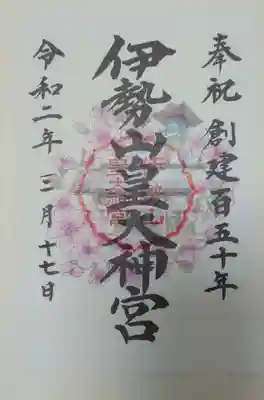 奉祝 創建百五十年
伊勢山皇大神宮
令和二年 三月 十七日